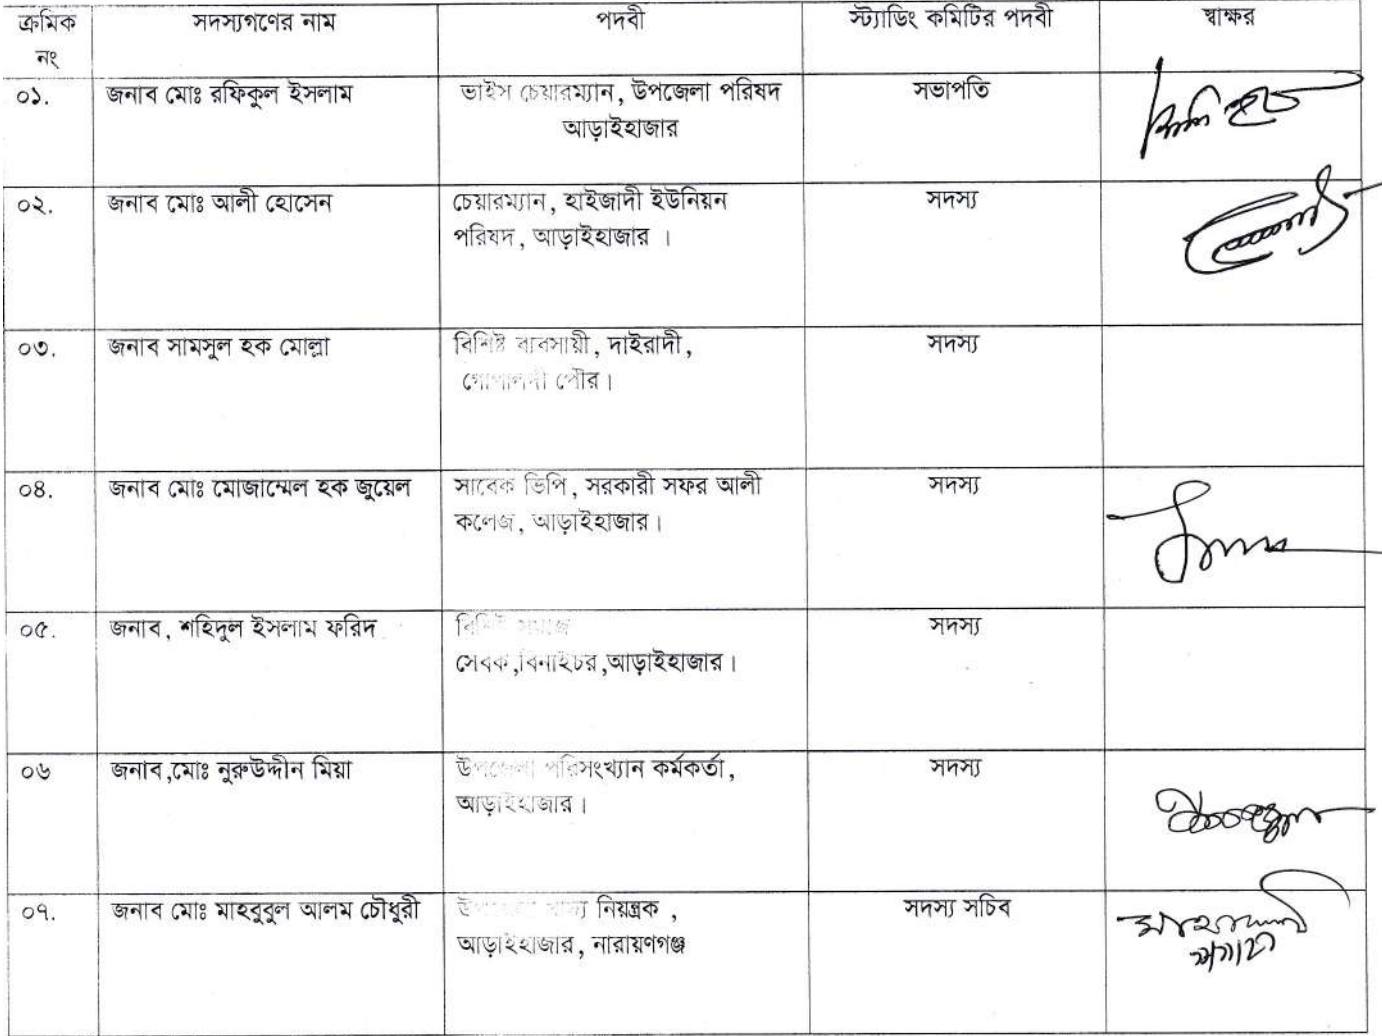 ক্রমিক নং | সদস্যগণের নাম | পদবী | স্ট্যাডিং কমিটির পদবী | স্বাক্ষর
০১. | জনাব মোঃ রফিকুল ইসলাম | ভাইস চেয়ারম্যান, উপজেলা পরিষদ | সভাপতি
আড়াইহাজার
০২. | জনাব মোঃ আলী হোসেন | চেয়ারম্যান, হাইজাদী ইউনিয়ন | সদস্য
পরিষদ, আড়াইহাজার ।
০৩. | জনাব সামসুল হক মোল্লা | বিশিষ্ট ব্যবসায়ী, দাইরাদী, | সদস্য
গোপালদী পৌর।
০৪. | জনাব মোঃ মোজাম্মেল হক জুয়েল | সাবেক ভিপি, সরকারী সফর আলী | সদস্য
কলেজ, আড়াইহাজার।
০৫. | জনাব, শহিদুল ইসলাম ফরিদ | বিশিষ্ট সমাজ | সদস্য
সেবক,বিনাইচর,আড়াইহাজার।
০৬ | জনাব,মোঃ নুরুউদ্দীন মিয়া | উপজেলা পরিসংখ্যান কর্মকর্তা, | সদস্য
আড়াইহাজার।
০৭. | জনাব মোঃ মাহবুবুল আলম চৌধুরী | উপজেলা খাদ্য নিয়ন্ত্রক , | সদস্য সচিব
আড়াইহাজার, নারায়ণগঞ্জ